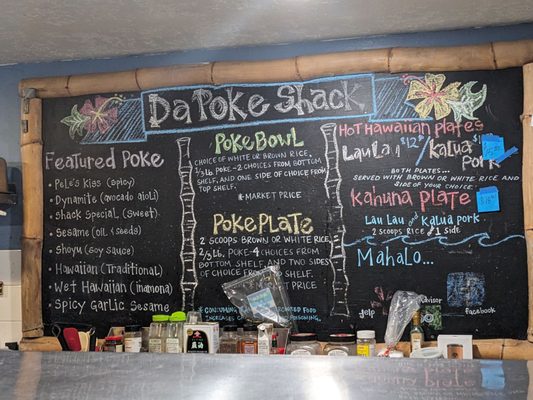 Da Poke Shack
Featured Poke
• Pele's Kiss (spicy)
• Dynamite (avocado aioli)
• Shack Special (sweet)
• Sesame (oil & seeds)
• Shoyu (soy sauce)
• Hawaiian (Traditional)
• Wet Hawaiian (inamona)
• Spicy Garlic Sesame
Poke Bowl
Choice of white or brown rice,
1/3 lb poke-2 choices from bottom
shelf, and one side of choice from
top shelf.
*Market Price
Poke Plate
2 scoops brown or white rice
2/3 lb. Poke-4 choices from
bottom shelf, and two sides
of choice from
Price
*Consuming
Food
Increases
Poisoning.
Hot Hawaiian Plates
Lau Lau $12 / Kalua
Pork
Both plates...
served with brown or white rice and
side of your choice.
Kahuna Plate
Lau Lau and Kalua Pork
2 scoops rice & 1 side
Mahalo...
Yelp
visor
Facebook